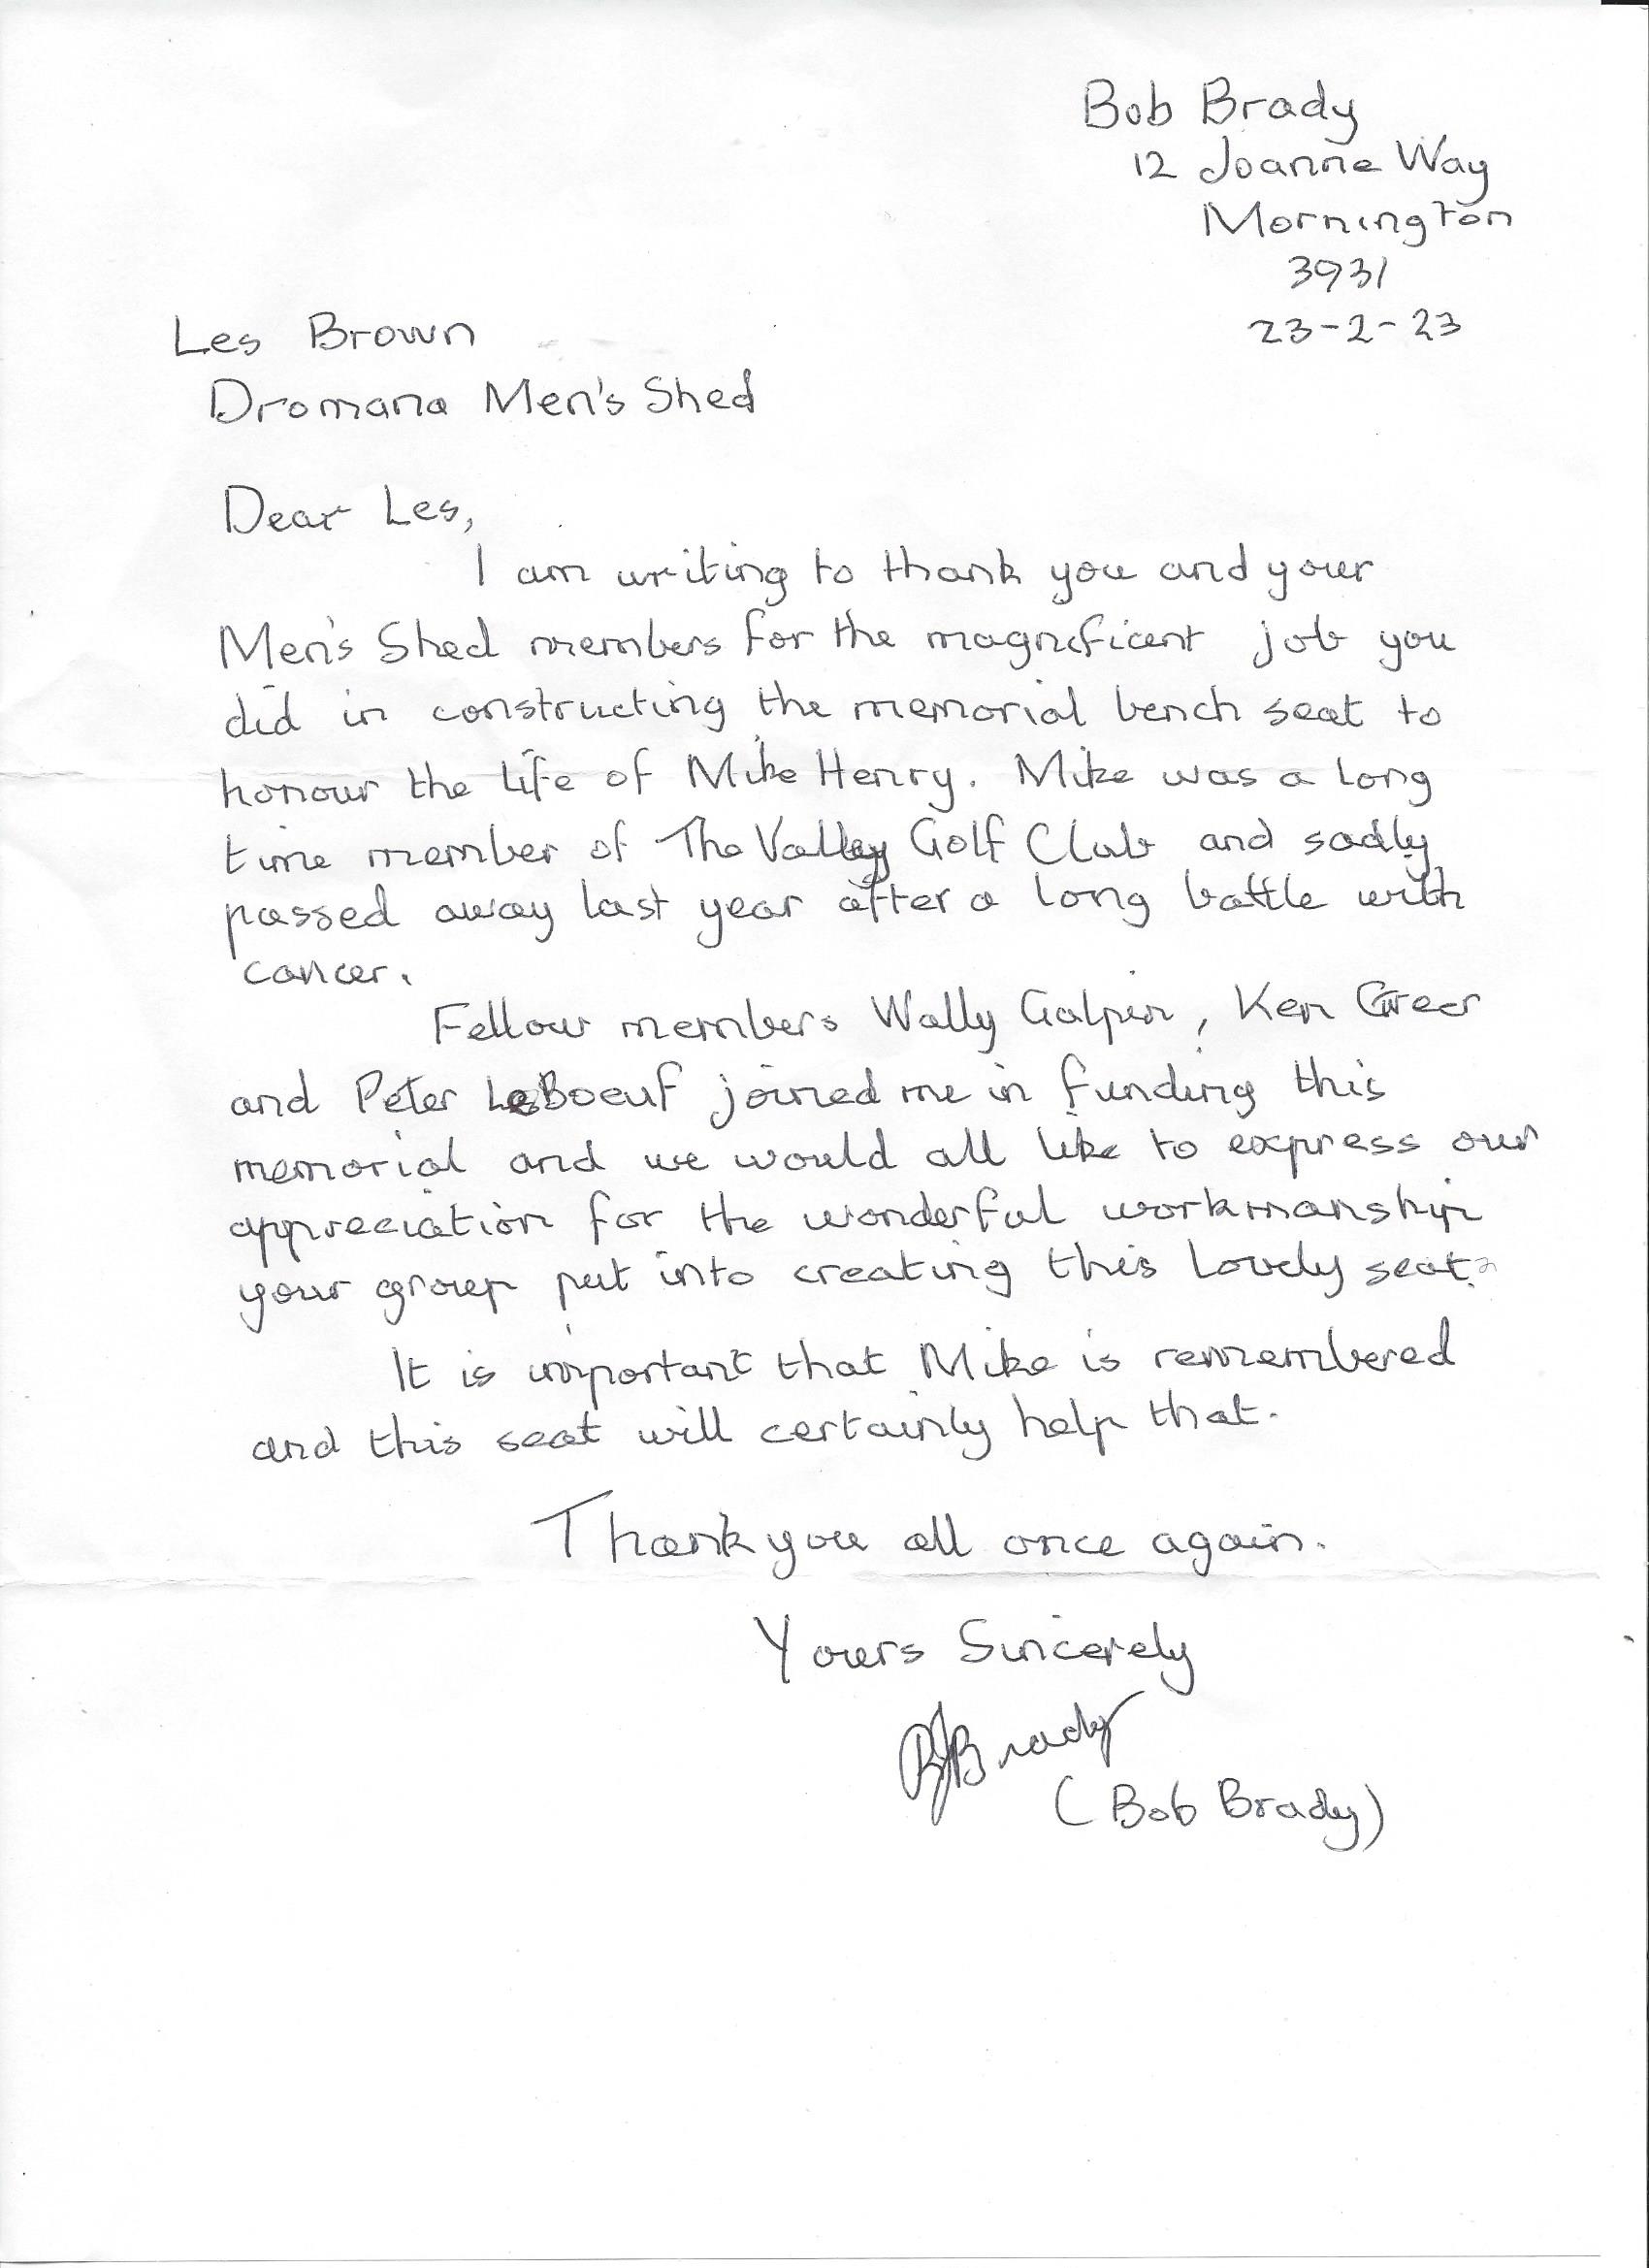 Bob Brady
12 Joanne Way
Mornington
3931
23-2-23
Les Brown
Dromana Men's Shed
Dear Les,
I am writing to thank you and your
Men's Shed members for the magnificent job you
did in constructing the memorial bench seat to
honour the life of Mike Henry. Mike was a long
time member of The Valley Golf Club and sadly
passed away last year after a long battle with
cancer.
Fellow members Wally Galpin, Ken Greer
and Peter LeBoeuf joined me in funding this
memorial and we would all like to express our
appreciation for the wonderful workmanship
your group put into creating this lovely seat.
It is important that Mike is remembered
and this seat will certainly help that.
Thank you all once again.
Yours Sincerely
BJBrady
(Bob Brady)